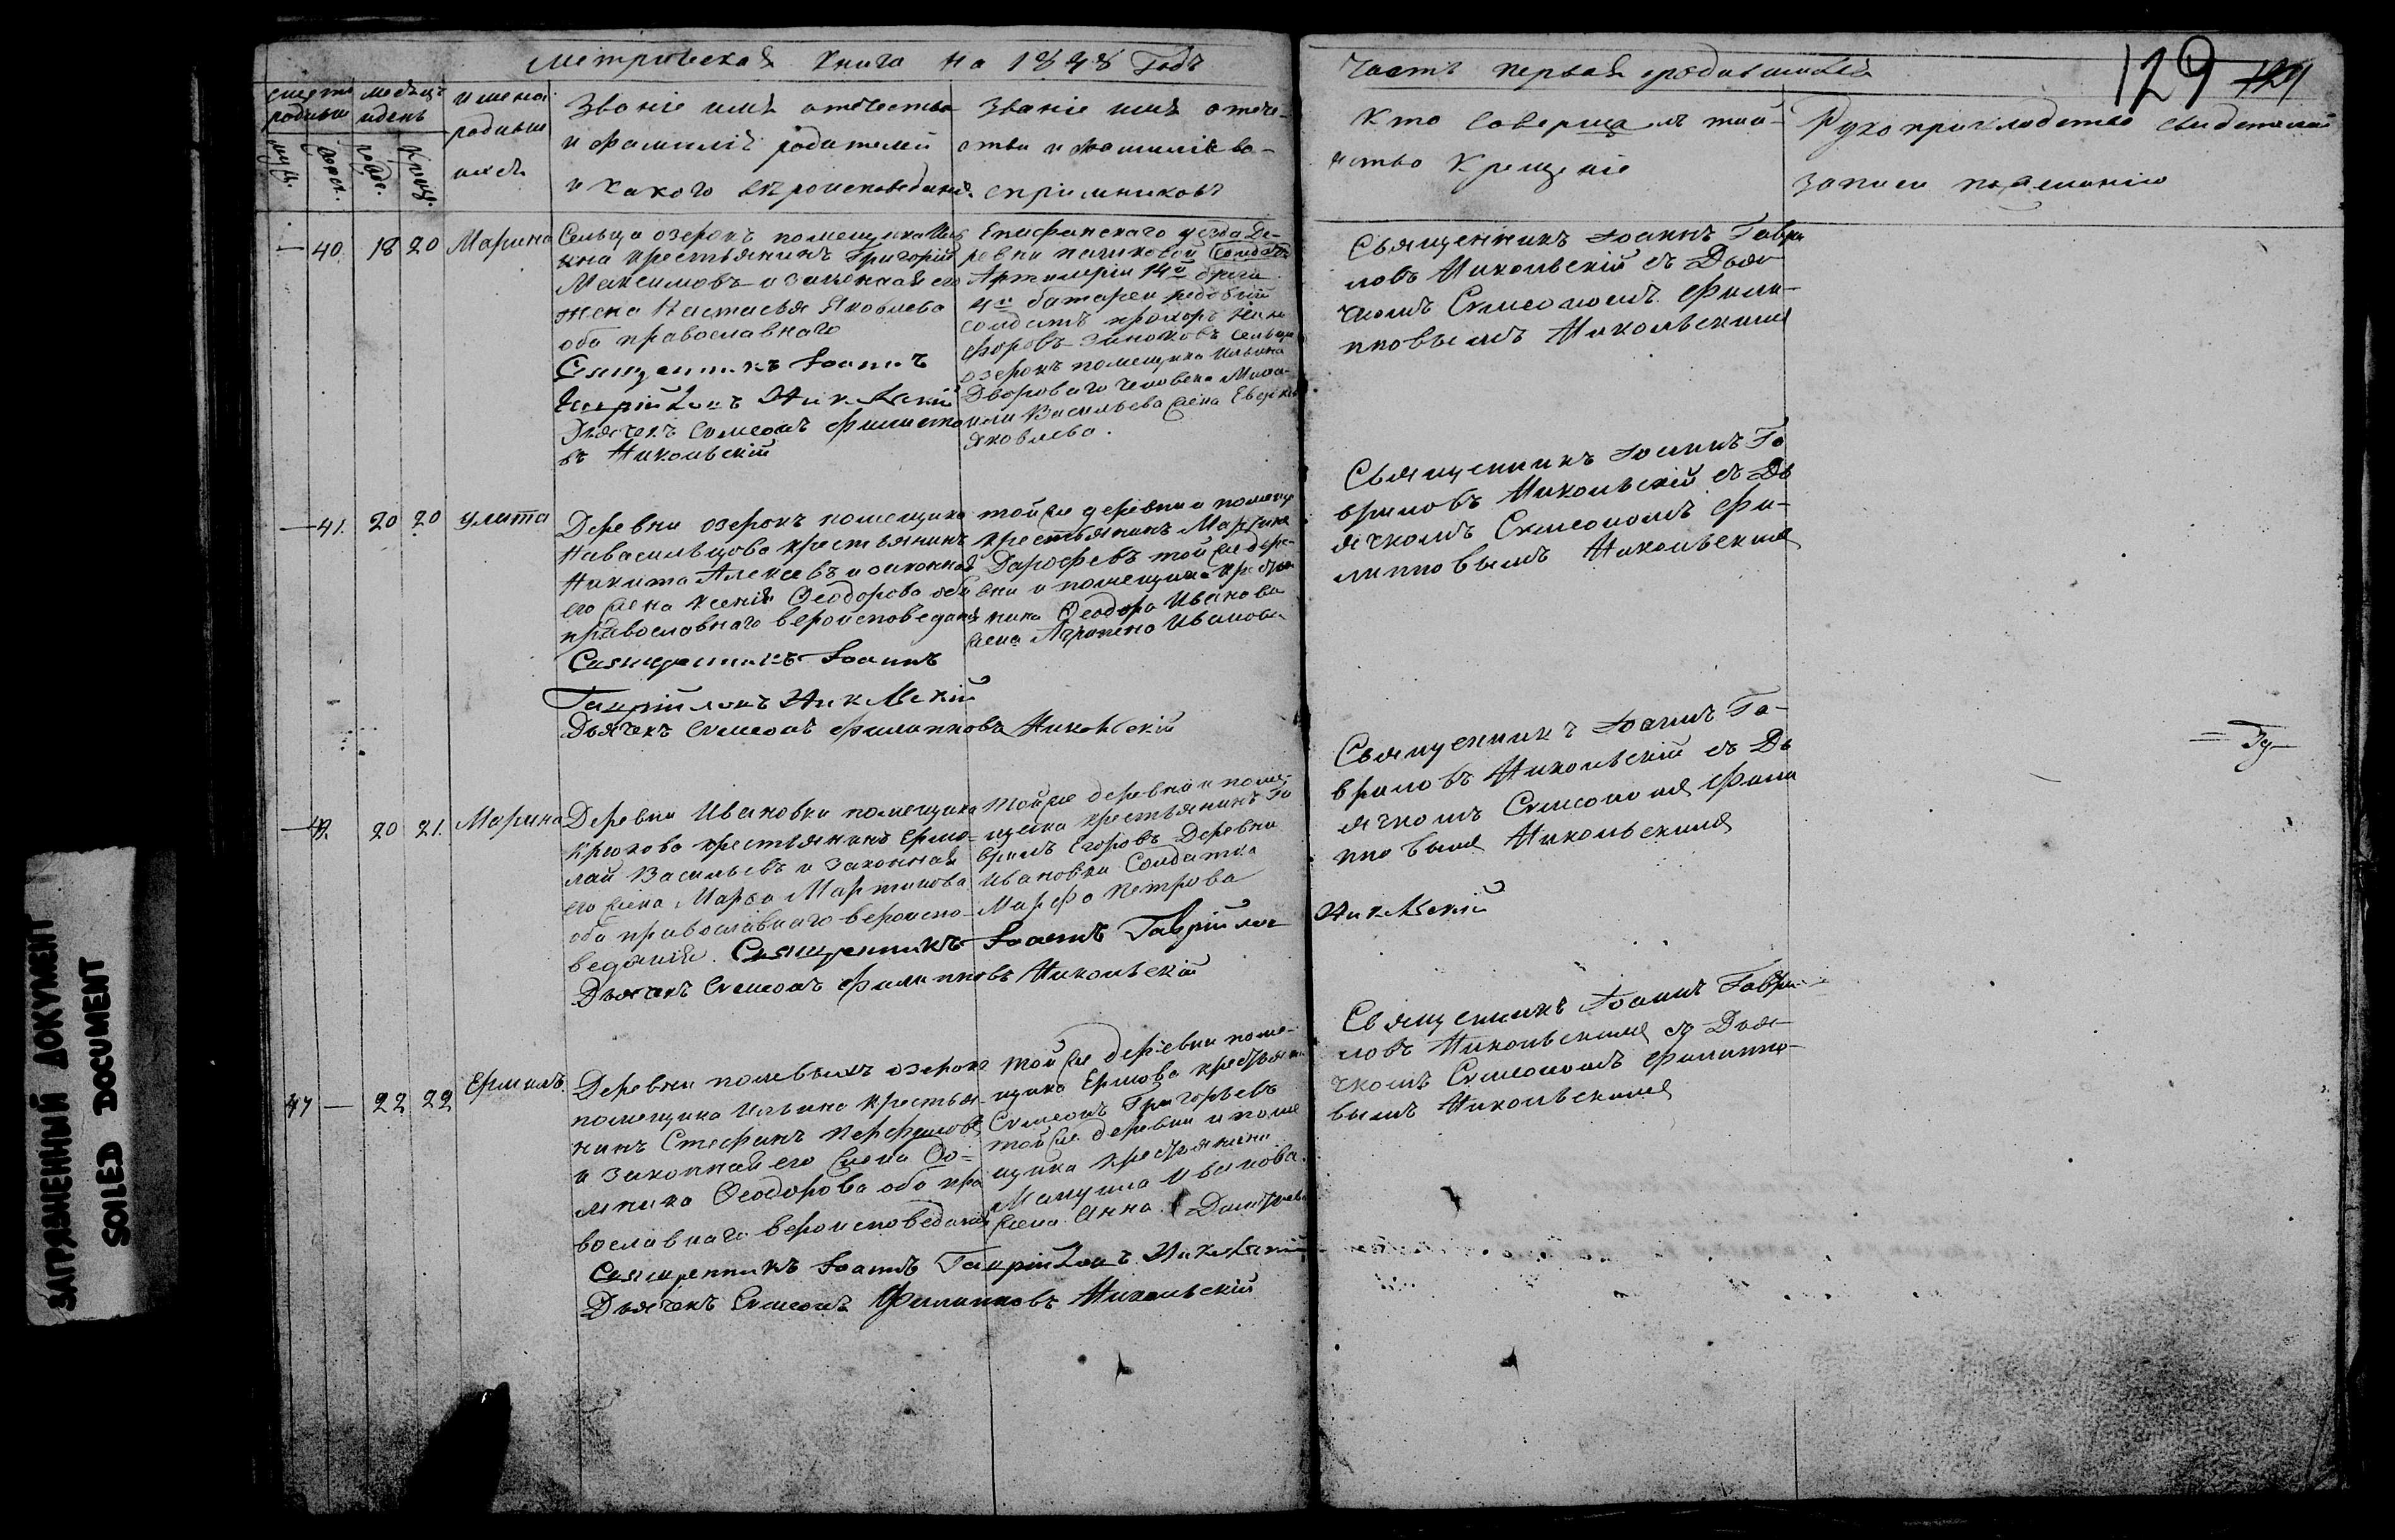 Метрическая Книга на 1848 Годъ
Часть первая о родившихся
129
счетъ родивш
муж.
женск.
месецъ и день
рожде.
крещ.
имена родившихся
Званiе имя отчество
и фамилiя родителей
и какого вѣроисповеданiя
Званiе имя отече-
ства и фамилiя во-
спрiемниковъ
Кто совершалъ таи-
нство Крещенiе
Рукоприкладство свидетелей
записи по желанiю
— 40. 18 20 Марина
Сельца озерокъ помещика Иль
ина крестьянинъ Григорiй
Максимовъ и законная его
жена Настасья Яковлева
оба православнаго
Священникъ Iоаннъ
Гаврiиловъ Никольскiй
Дьячекъ Симеонъ Филиппо
въ Никольскiй
Епифанскаго уезда Де-
ревни
Артилерiи 14й брига
4й батареи рядовый
солдатъ прохоръ Ники
форовъ сельца
озерокъ помещика Ильина
Двороваго человека Миха-
или Васильева жена Евдокия
Яковлева.
Священникъ Iоаннъ Гаври
ловъ Никольскiй съ Дья-
чкомъ Симеономъ Фили-
пповымъ Никольскимъ
— 41. 20 20 Улита
Деревни озерокъ помещика
Навасильцова крестьянинъ
Никита Алексевъ и законная
его жена Ксенiя Феодорова оба
православнаго вероисповеданiя
Священникъ Iоаннъ
Гаврiиловъ Никольскiй
Дьячекъ Симеонъ Филипповъ Никольскiй
той же деревни и помещи
крестьянинъ
Дарофевъ той же дере-
вни и помещика крестья
нина Феодора Иванова
жена Агрипена Иванова
Священникъ Iоаннъ Га
вриловъ Никольскiй съ Дь
ячкомъ Симеономъ Фи-
липповымъ Никольскимъ
— 20 21. Марина
Деревни Ивановки помещика
Крюкова крестьянинъ Ермо-
лай Васильевъ и законная
его жена Марья Мартинова
оба православнаго вероиспо-
веданiя. Священникъ Iоаннъ Гаврiиловъ
Никольскiй
Дьячекъ Симеонъ Филипповъ Никольскiй
Той же деревни и поме-
щика крестьянинъ Га
врилъ Егоровъ Деревни
Ивановки Солдатка
Марфа Петрова
Священникъ Iоаннъ Га-
вриловъ Никольскiй съ Дь
ячкомъ Симеономъ Фили
пповымъ Никольскимъ
— 22 22 Ермилъ.
Деревни полевыхъ озерокъ
помещика Ильина крестья-
нинъ Стефанъ Перфиловъ
и законная его жена Оо-
мпика Феодорова оба пра
вославнаго вероисповеданiя
Священникъ Iоаннъ Гаврiиловъ Никольскiй
Дьячекъ Симеонъ Филипповъ Никольскiй
той же деревни поме-
щика Ермова крестьянинъ
Симеонъ Григорьевъ
той же деревни и поме
щика крестьянина
Иванова
жена Анна Дмитрева
Священникъ Iоаннъ Гаври-
ловъ Никольскимъ съ Дья-
чкомъ Симеономъ Филиппо-
вымъ Никольскимъ
ЗАГРЯЗНЕННЫЙ ДОКУМЕНТ
SOILED DOCUMENT